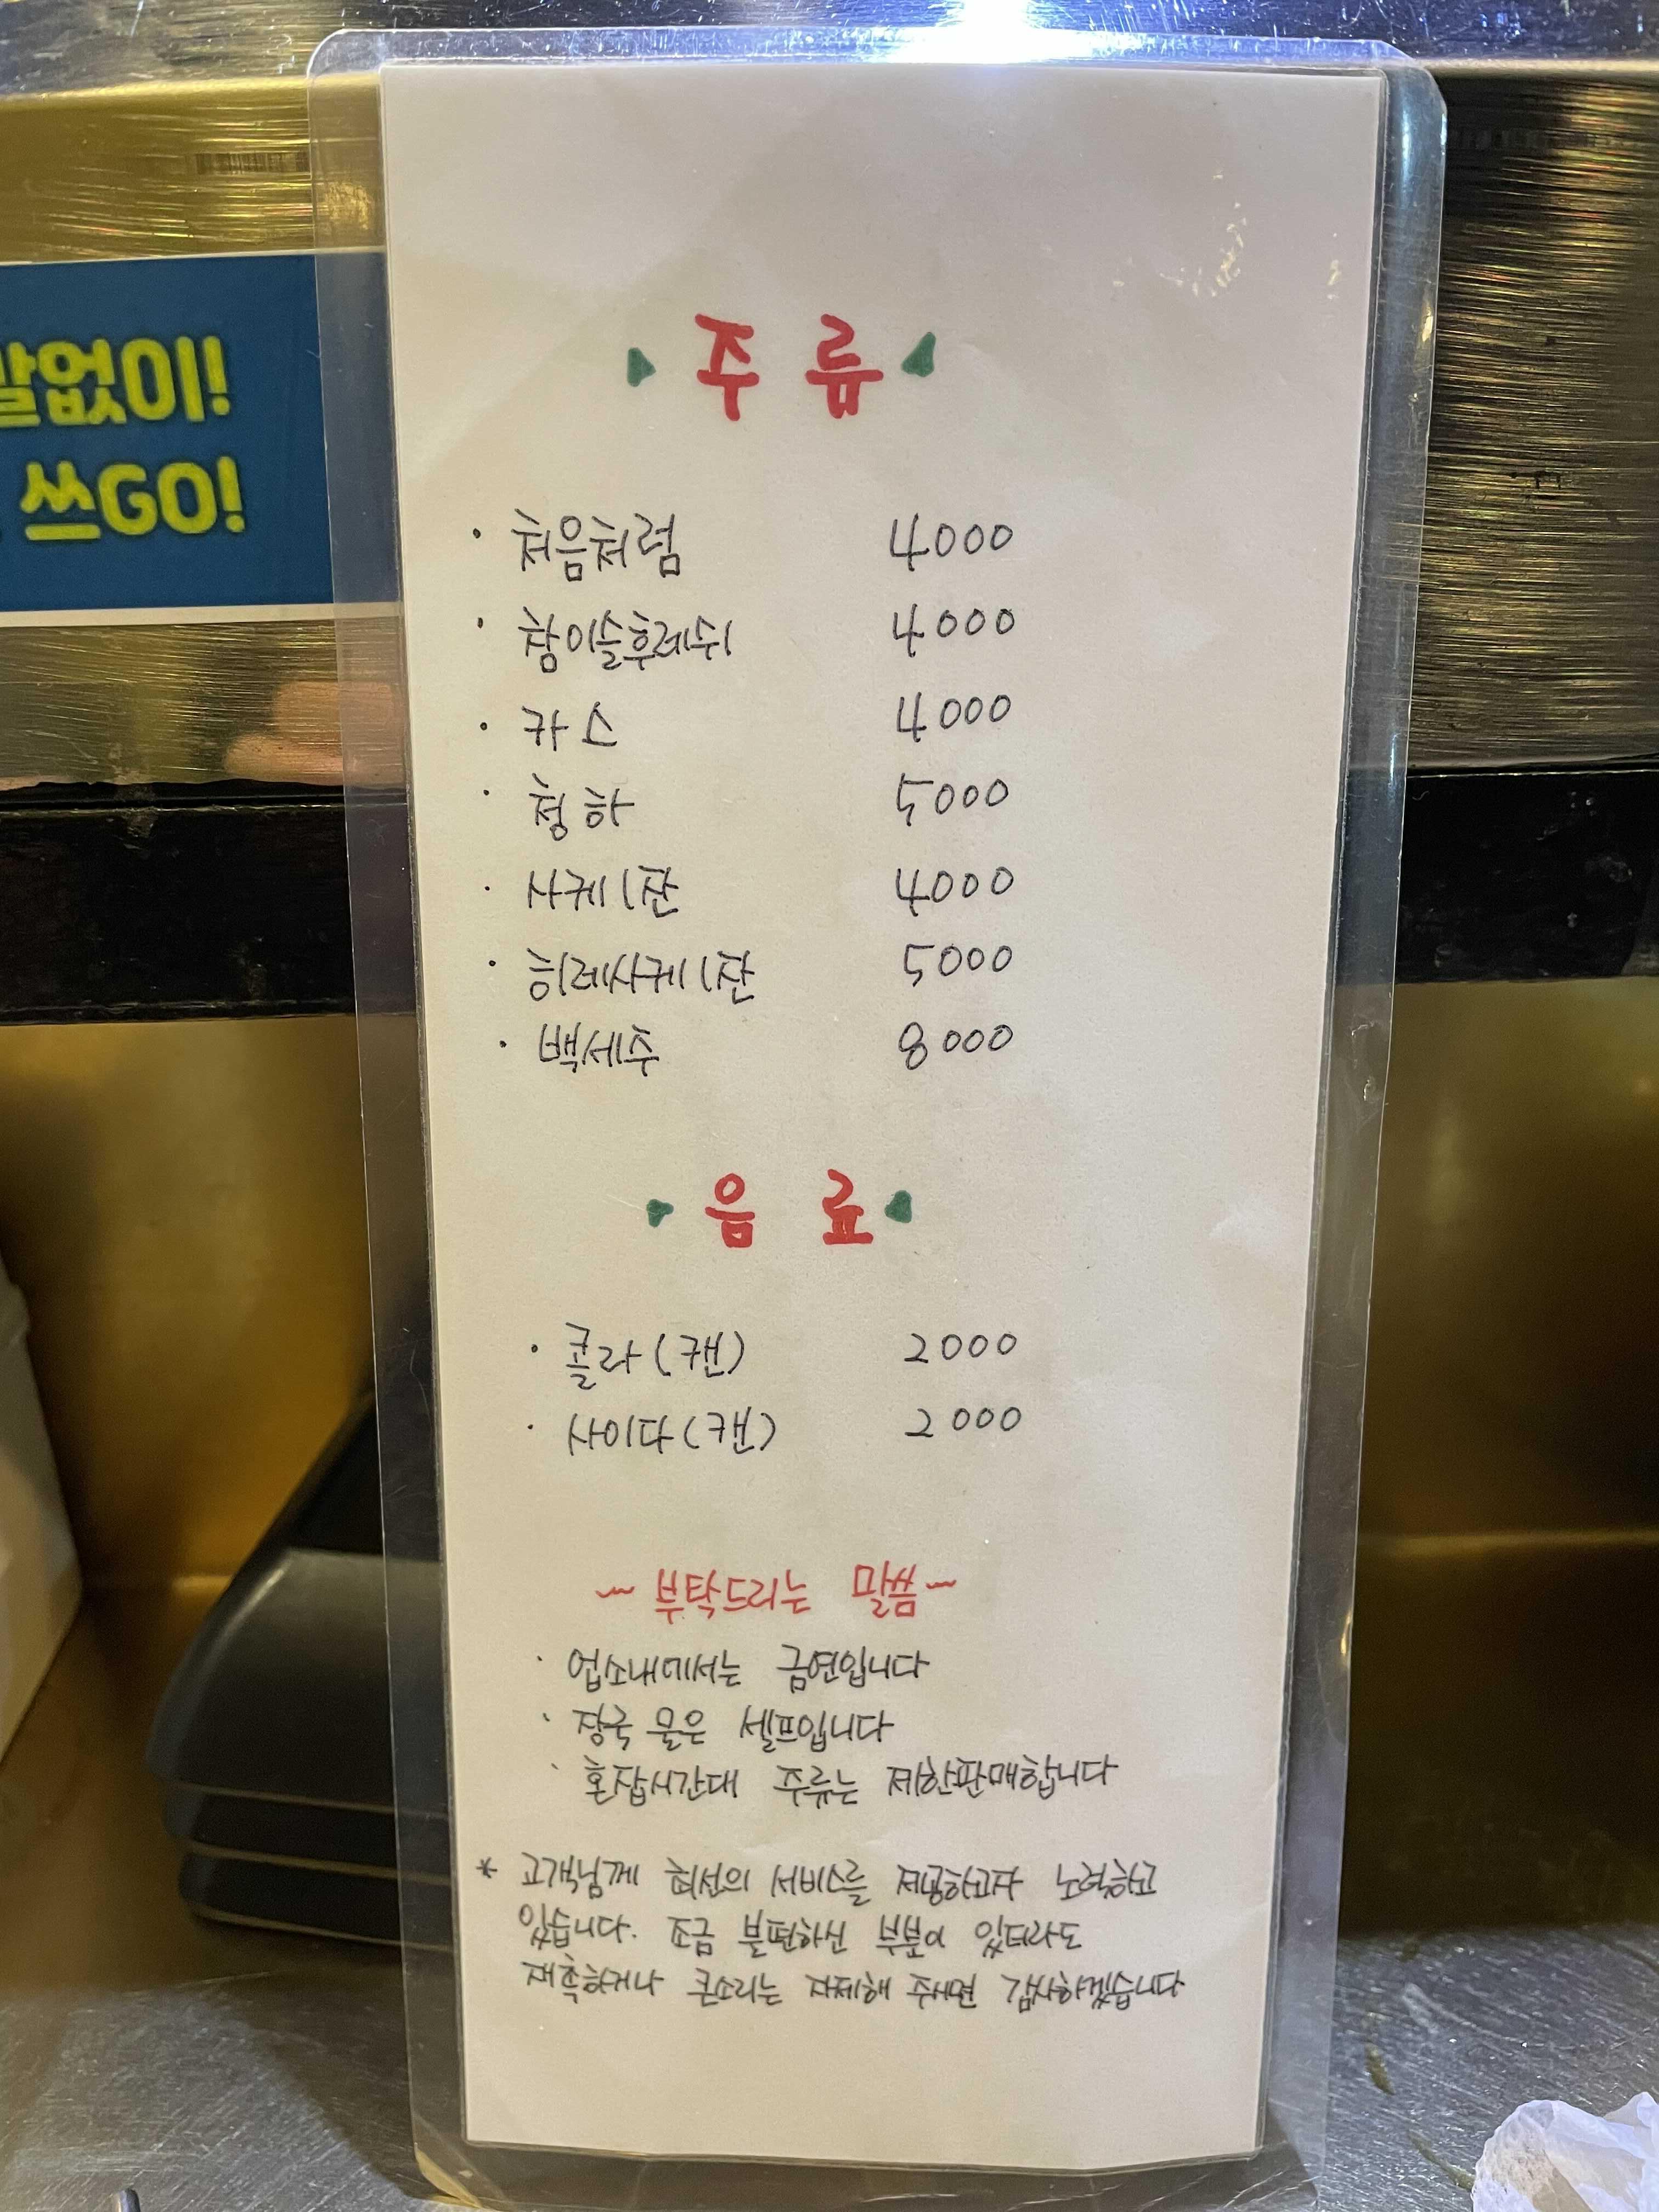 말없이!
쓰GO!
주 류
· 처음처럼 4000
· 참이슬후레쉬 4000
· 카스 4000
· 청하 5000
· 사케 1잔 4000
· 히레사케 1잔 5000
· 백세주 8000
음 료
· 콜라(캔) 2000
· 사이다(캔) 2000
~ 부탁드리는 말씀 ~
· 업소내에서는 금연입니다
· 장국 물은 셀프입니다
· 혼잡시간대 주류는 제한판매합니다
* 고객님께 최선의 서비스를 제공하고자 노력하고
있습니다. 조금 불편하신 부분이 있더라도
재촉하거나 큰소리는 자제해 주시면 감사하겠습니다